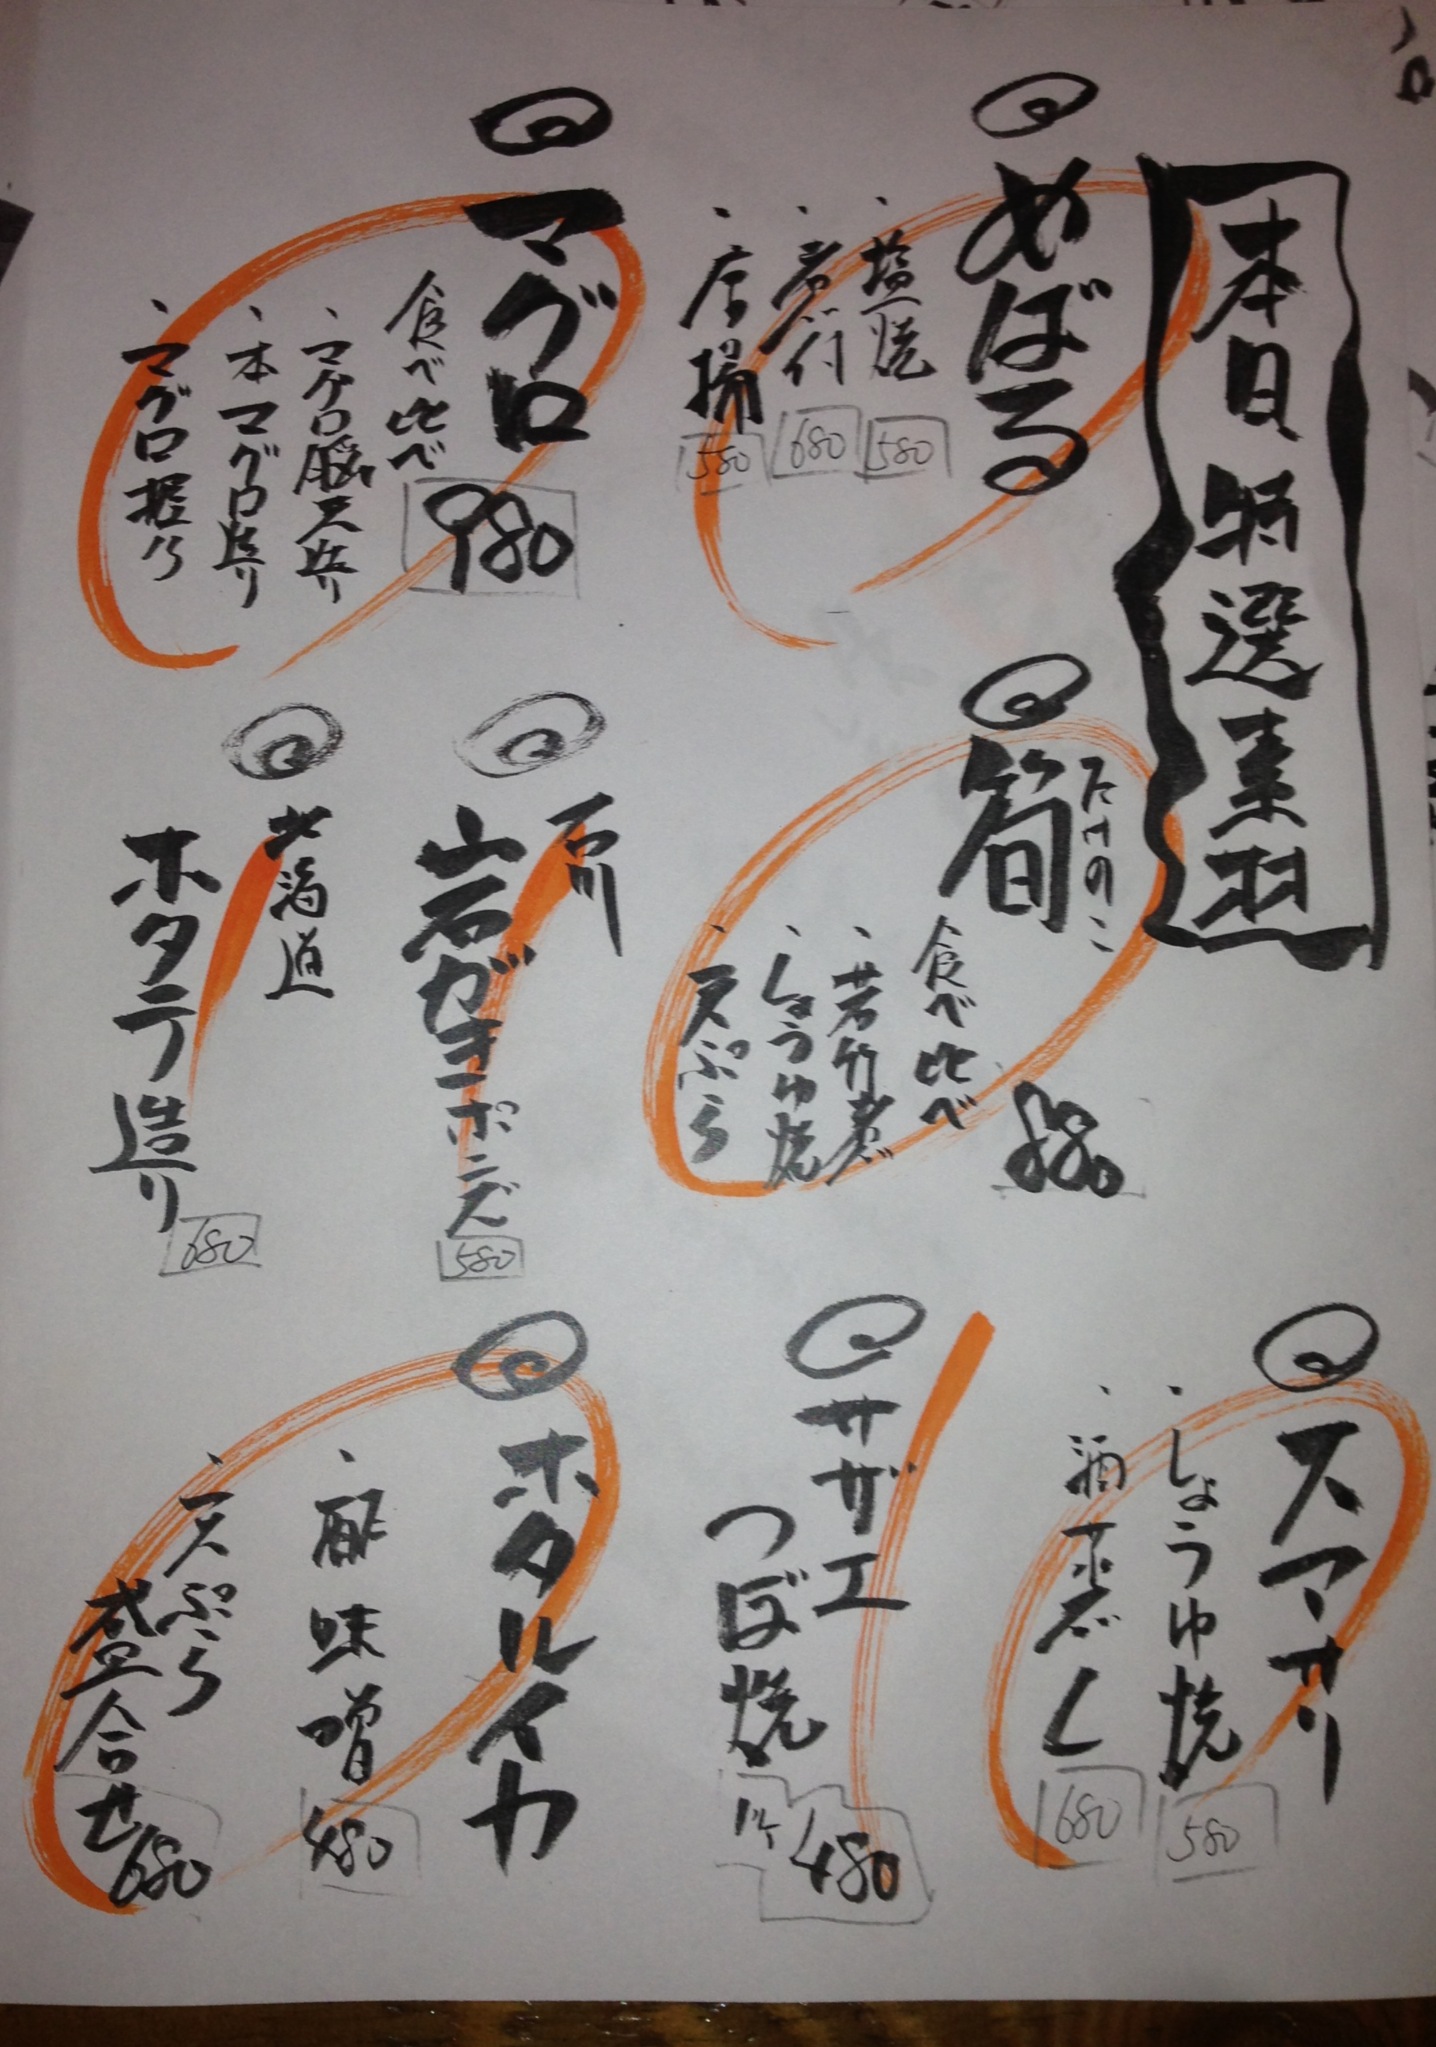 本日特選素材
めばる
、塩焼 580
、煮付 680
、唐揚 580
マグロ
食べ比べ 980
、マグロ脳天造り
、本マグロ造り
、マグロ握り
たけのこ
筍
食べ比べ 880
、若竹煮
、しょうゆ焼
、天ぷら
石川
岩ガキポンズ 580
北海道
ホタテ造り 680
大アサリ
、しょうゆ焼 580
、酒蒸し 680
サザエ
つぼ焼 1ケ 480
ホタルイカ
、酢味噌 480
、天ぷら
盛合せ 680